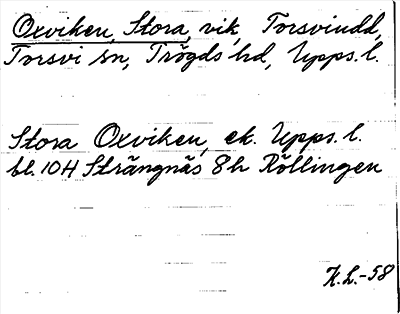 Oxviken, Stora, vik, Torsvindd,
Torsvi sn, Trögds hd, Upps. l.
Stora Oxviken, ek. Upps. l.
bl. 104 Strängnäs 8h Röllingen
K.L.-58